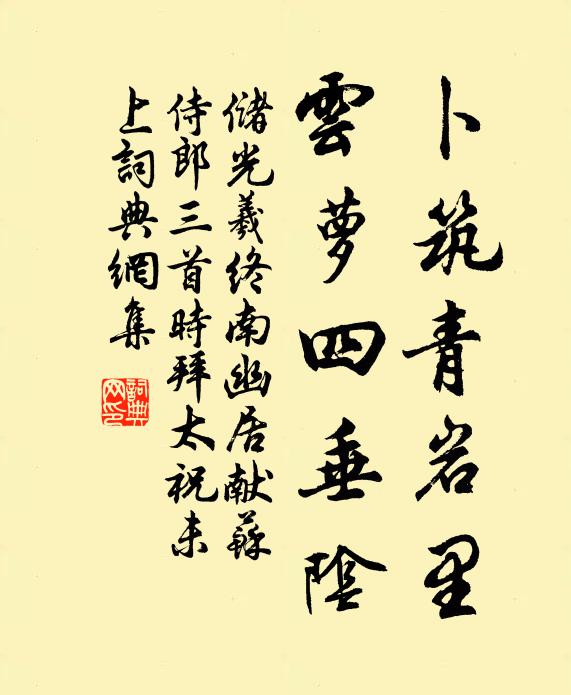 卜筑青岩里
雲萝四垂陰
儲光羲終南幽居献蘇
侍郎三首時拜太祝未
上詞典網集
詞典
网印